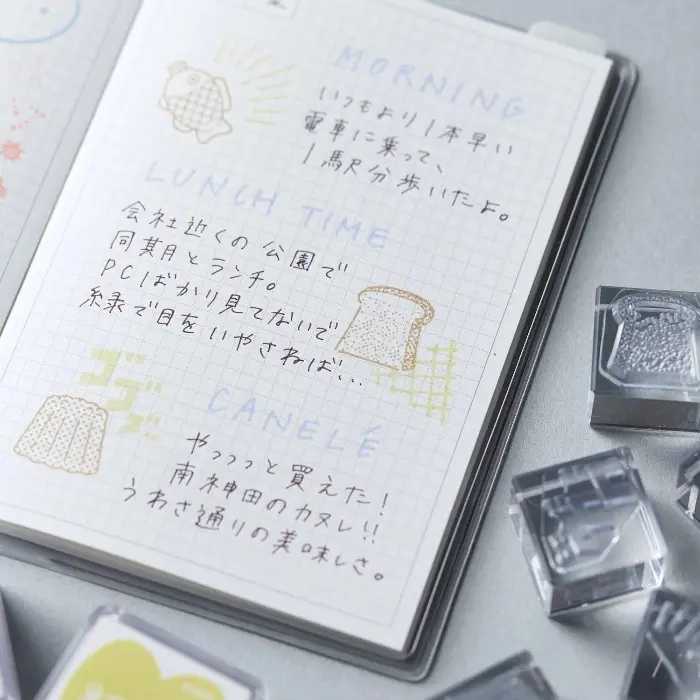 MORNING
いつもより1本早い
電車に乗って、
1駅分歩いたよ。
LUNCH TIME
会社近くの公園で
同期とランチ。
PCばかり見てないで
緑で目をいやさねば...
ゴゴゴ
CANELÉ
やっっっと買えた!
南神田のカヌレ!!
うわさ通りの美味しさ。